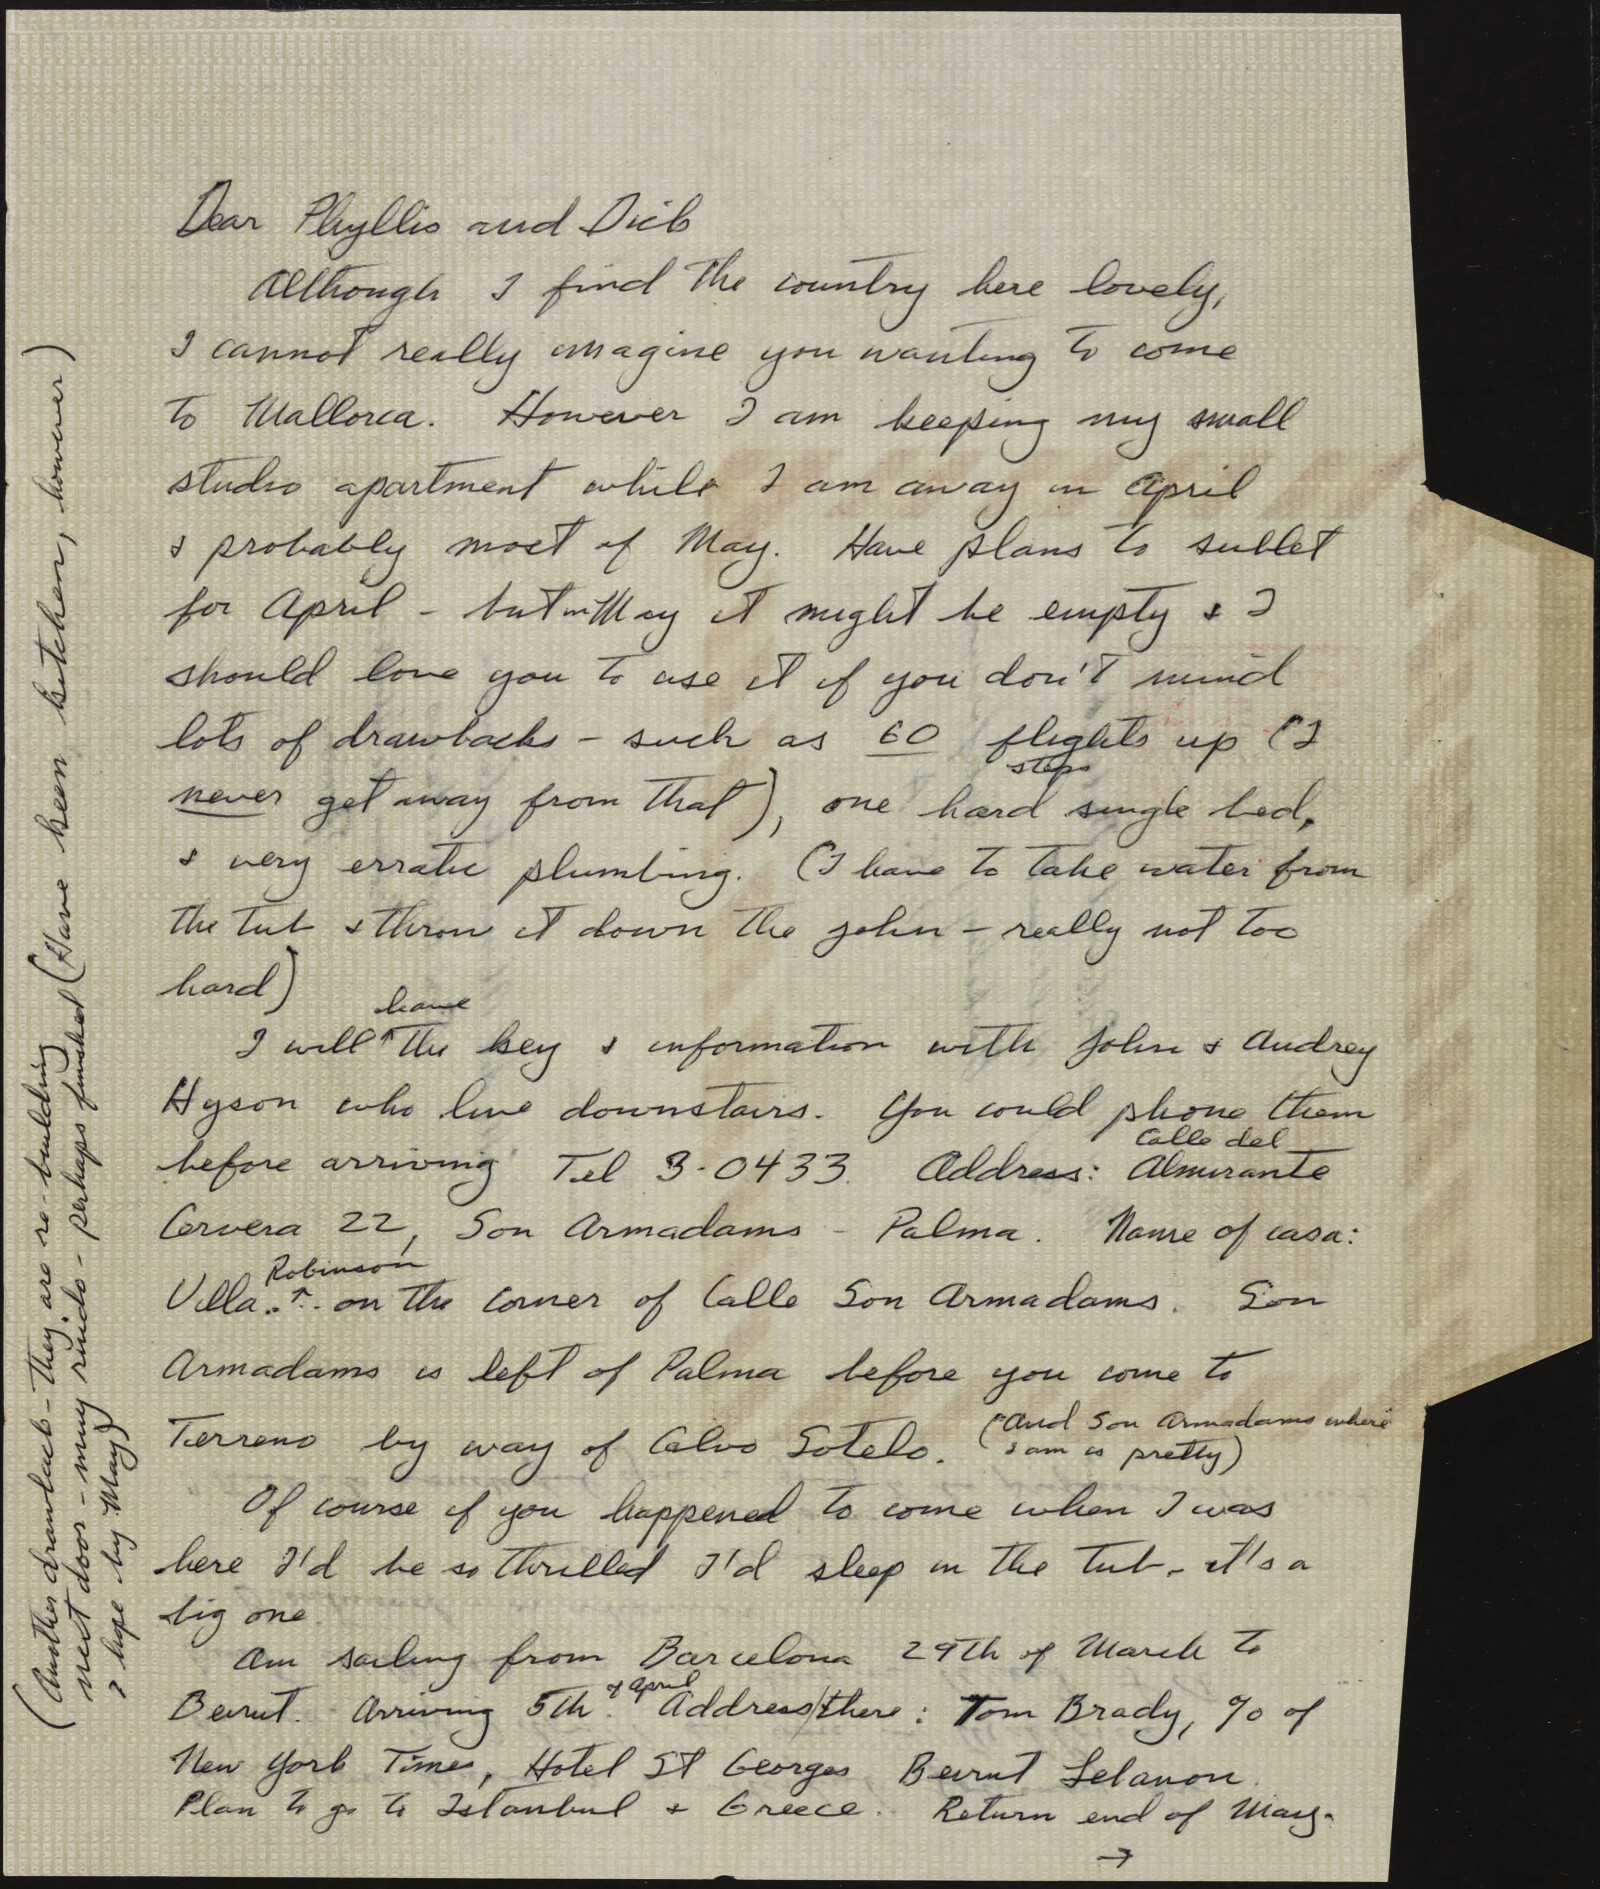 Dear Phyllis and Dick
Although I find the country here lovely,
I cannot really imagine you wanting to come
to Mallorca. However I am keeping my small
studio apartment while I am away in April
& probably most of May. Have plans to sublet
for April - but in May it might be empty & I
should love you to use it if you don't mind
lots of drawbacks - such as 60 flights up (I
steps
never get away from that), one hard single bed,
& very erratic plumbing. (I have to take water from
the tub & throw it down the john - really not too
hard)
leave
I will ↑ the key & information with John & Audrey
Hyson who live downstairs. You could phone them
before arriving Tel 3-0433. Address: Calle del Almirante
Cervera 22, Son Armadams - Palma. Name of casa:
Robinson
Villa..↑.. on the corner of Calle Son Armadams. Son
Armadams is left of Palma before you come to
Terreno by way of Calvo Sotelo. (And Son Armadams where
I am is pretty)
Of course if you happened to come when I was
here I'd be so thrilled I'd sleep in the tub - it's a
big one.
Am sailing from Barcelona 29th of March to
Beirut. Arriving 5th of April. Address/there: Tom Brady, % of
New York Times, Hotel St Georges Beirut Lebanon.
Plan to go to Istanbul & Greece. Return end of May.
→
(Another drawback - they are re-building
next door - muy ruido - perhaps finished
I hope by May)
(Have been kitchen, however)